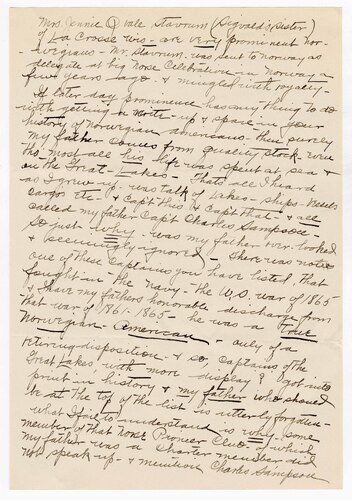 Mrs. Jennie Qvale Stavrum (Sigvald's sister)
of La Crosse Wis - are very prominent Nor-
wegians - Mr. Stavrum was sent to Norway as
delegate at big Norse Celebration in Norway a
few years ago - & mingled with royalty -
If later day prominence has any thing to do
with getting a write-up & space in your
history of Norwegian americans - then surely
my father comes from quality stock. Even
tho' most all his life was spent at sea &
on the Great - Lakes - Thats all I heard
as I grew up - was talk of Lakes - ships - Reefs
cargos Etc - & Capt this & Capt that - & all
called my father Capt Charles Sampson -
So just why - was my father over-looked
& seemingly ignored - There was not
one of these Captains you have listed, that
fought in - the navy - the U.S. war of 1865
& I have my fathers honorable discharge from
that war of 1861-1865 - he was a True
Norwegian - American - only of a
retiring disposition - & so, Captains of the
Great Lakes, with more display? got into
print in history & my father who should
be at the top of the list is utterly forgotten -
what I fail to understand is why some
member of that Norse Pioneer Club - of which
my father was a Charter member did
not speak up - & mention Charles Sampson